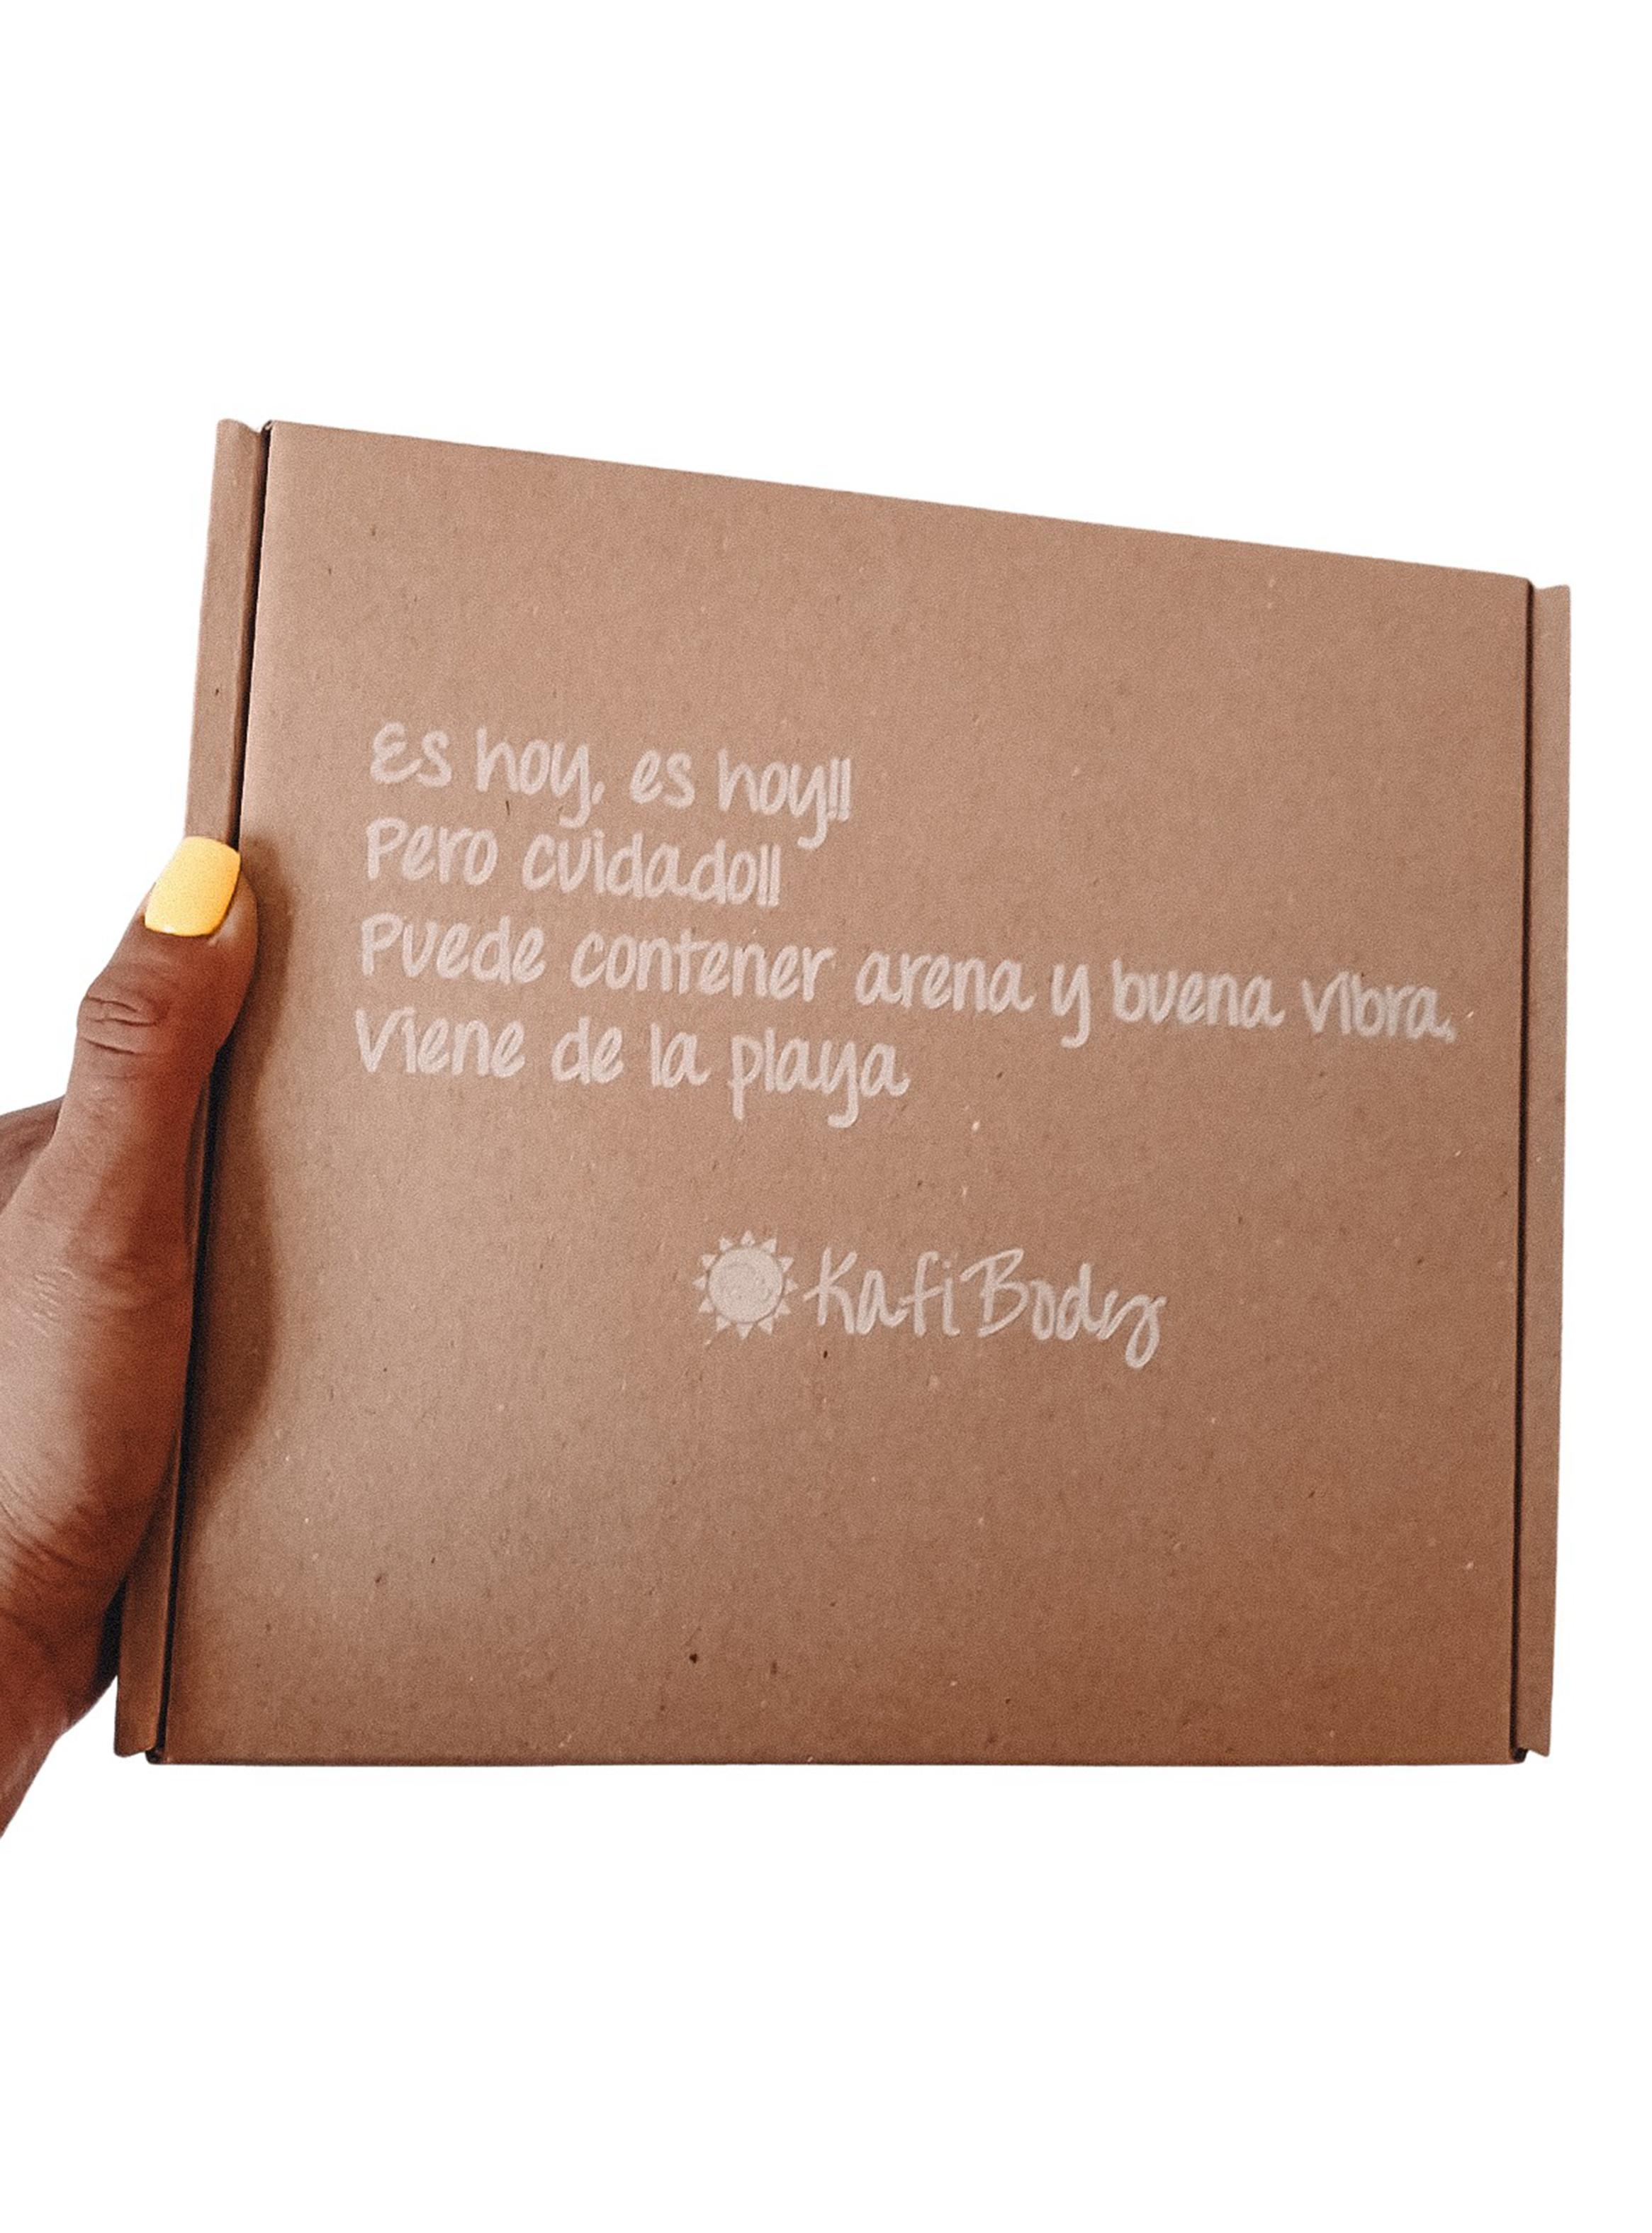 Es hoy, es hoy!!
Pero cuidado!!
Puede contener arena y buena vibra,
Viene de la playa
Kafi Body